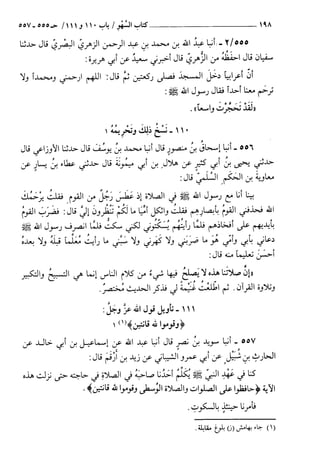 ١٩٨ ــــــــــــــــــ كتاب السَّهْو / باب ١١٠ و١١١ / حـ ٥٥٥ - ٥٥٧
٢/٥٥٥ - أنبا عبدُ الله بن محمد بن عبد الرحمن الزهريّ البصْريّ قال حدثنا
سفيان قال احفَظُهُ من الزُهْريّ قال أخبرني سعيدٌ عن أبي هريرة:
أنّ أعرابياً دَخَلَ المسجدَ فصلى ركعتين ثمَّ قال: اللهم ارحمني ومحمداً ولا
ترحم معنا أحداً فقال رسول الله ﷺ:
«لَقَدْ تَحَجَّرْتَ واسعاً».
١١٠ - نَسْخُ ذلِكَ وَتَحْرِيمُهُ
٥٥٦ - أنبا إسحاقُ بنُ منصورٍ قال أنبا محمدُ بنُ يوسُفَ قال حدثنا الأوزاعي قال
حدثني يحيى بنُ أبي كثيرٍ عن هلالِ بنِ أبي ميمونَةَ قال حدثني عطاء بنُ يسارٍ عن
معاويةَ بنِ الحكمِ السُّلَمِيِّ قال:
بينا أنا مع رسول الله ﷺ في الصلاةِ إذ عَطَسَ رَجُلٌ من القومِ فقلتُ يرْحَمُكَ
الله فحدفني القومُ بأبصارِهم فقلتُ واثكل أُمَّيا ما لَكُمْ تَنْظُرونَ إليَّ قال: فضَرَبَ القومُ
بأيديهم على أفخاذهم فلمّا رأيتُهم يُسكتُوني لكني سكتُّ فلمَّا انصرف رسول الله ﷺ
دعاني بأبي وأمّي هُوَ ما ضرَبني ولا كَهرني ولا سَبَّني ما رأيتُ مُعلِّماً قبلَهُ ولا بعدهُ
أحسَنَ تعليماً منه قال:
«إنَّ صلاتَنا هذه لا يَصلحُ فيها شيءٌ من كلام الناس إنما هي التسبيحُ والتكبير
وتلاوة القرآن. ثم اطلعتُ غُنَيْمةً لي فذكر الحديث مُختصرٌ.
١١١ - تأويل قول الله عزَّ وجلَّ:
﴿وقوموا لله قانتين﴾(١)
٥٥٧ - أنبا سويد بن نصرٍ قال أنبا عبد الله عن إسماعيل بن أبي خالد عن
الحارثِ بنِ شُبَيْلٍ عن أبي عمروٍ الشيباني عن زيد بن أرقَمَ قال:
كنا في عَهْدِ النبيِّ ﷺ يُكلِّمُ أحدُنا صاحبهُ في الصلاة في حاجته حتى نزلت هذه
الآية ﴿حافظوا على الصلوات والصلاة الوُسطى وقوموا لله قانتين﴾.
فأمرنا حينئذٍ بالسكوتِ.
(١) جاء بهامش (ز) بلوغ مقابلة.